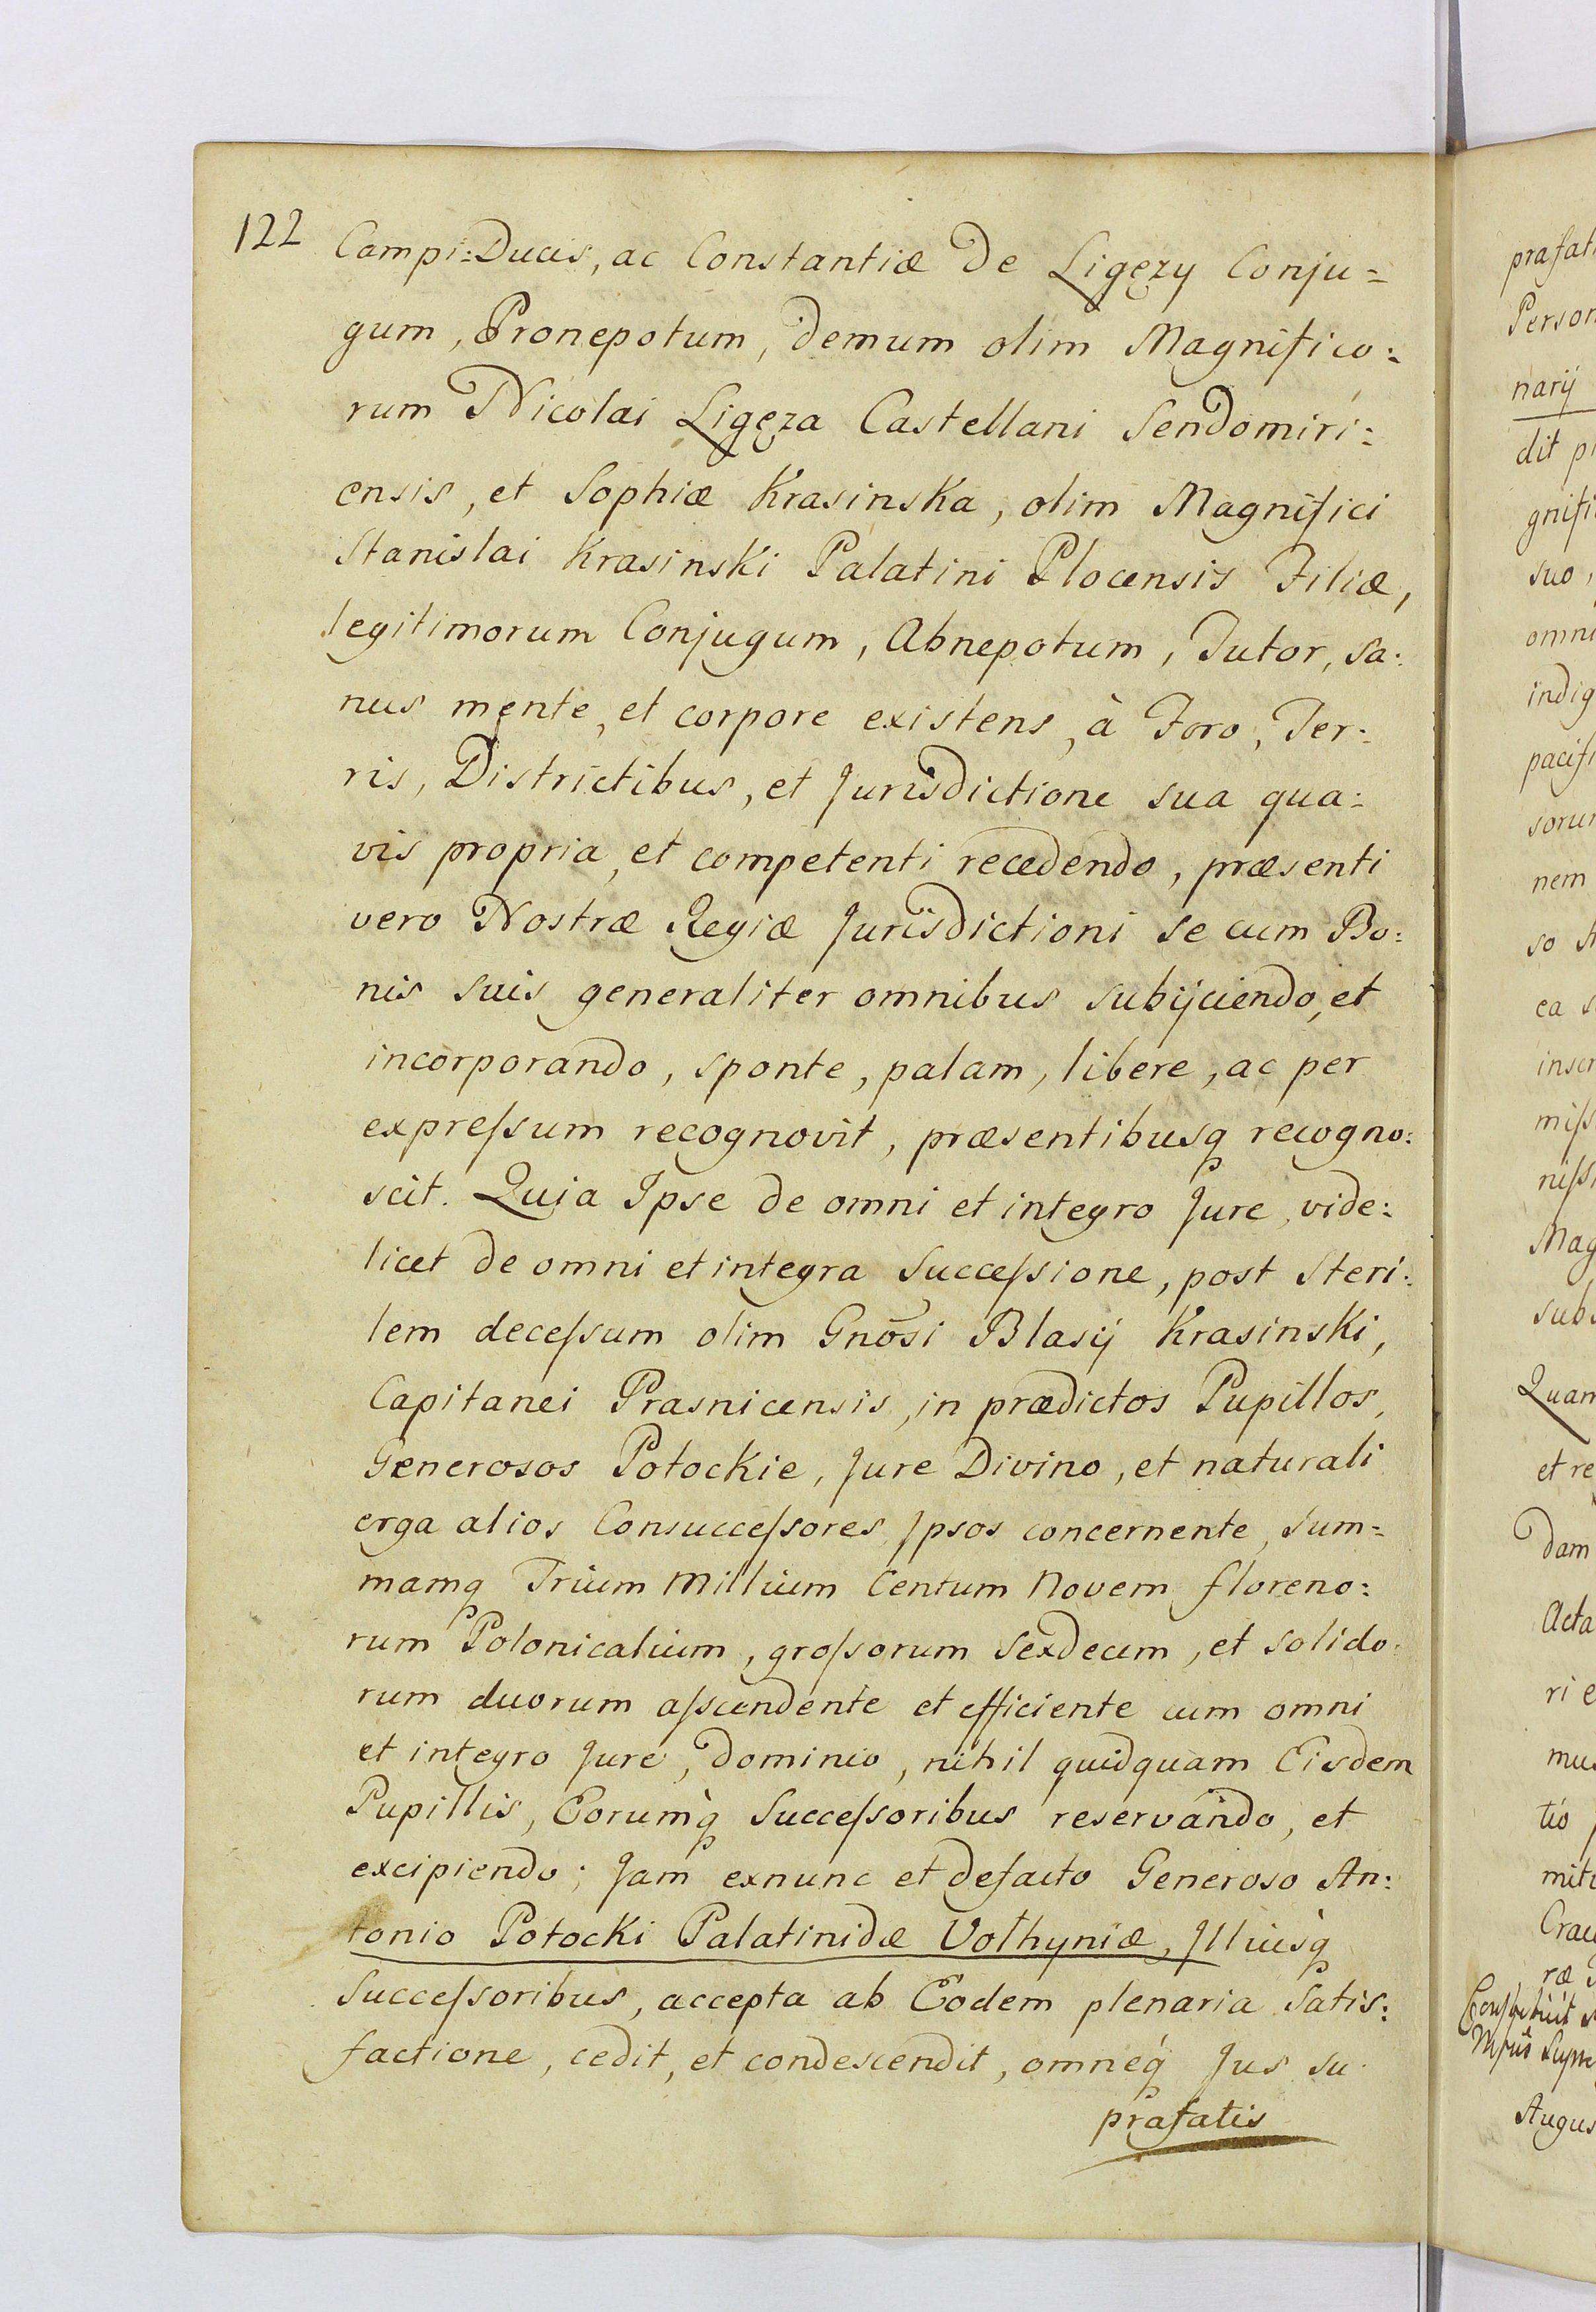 122
Campi=Ducis, ac Constantiæ De Ligęzy Conju=
gum, Pronepotum, Demum olim Magnifico:
rum Nicolai Ligęza Castellani Sendomiri:
ensis, et Sophiæ Krasinska, olim Magnifici
Stanislai Krasinski Palatini Plocensis Filiæ,
legitimorum Conjugum, Abnepotum, Tutor, sa:
nus mente, et corpore existens, à Foro, Ter:
ris, Districtibus, et Jurisdictione sua qua:
vis propria, et competenti recedendo, præsenti
vero Nostræ Regiæ Jurisdictioni se cum Bo:
nis suis generaliter omnibus subijciendo, et
incorporando, sponte, palam, libere, ac per
expreſsum recognovit, præsentibusq recogno:
scit. Quia Ipse de omni et integro Jure, vide:
licet de omni et integra Succeſsione, post Steri:
lem deceſsum olim Gnōsi Blasij Krasinski,
Capitanei Prasnicensis, in prædictos Pupillos,
Generosos Potockie, Jure Divino, et naturali
erga alios Consucceſsores Ipsos concernente, Sum=
mamq Trium Millium Centum Novem floreno:
rum Polonicalium, groſsorum Sexdecem, et solido:
rum duorum aſscendente et efficiente cum omni
et integro Jure, Dominio, nihil quidquam Eisdem
Pupillis, Eorumq̀ Succeſsoribus reservando, et
excipiendo; Jam exnunc et defacto Generoso An:
tonio Potocki Palatinidæ Volhyniæ, Illiusq̀
Succeſsoribus, accepta ab Eodem plenaria Satis:
factione, cedit, et condescendit, omneq́ Jus su
præfatis
præfati
Person
narij
dit pr
gnifi
suo,
omni
indig
pacifi
sorum
nem
so A
ea s
inscr
miſs
niſsi
Mag
subs
Quam
et re
Dam
Acta
ri e
mus
tio
miti
Crac
ræ
Augus